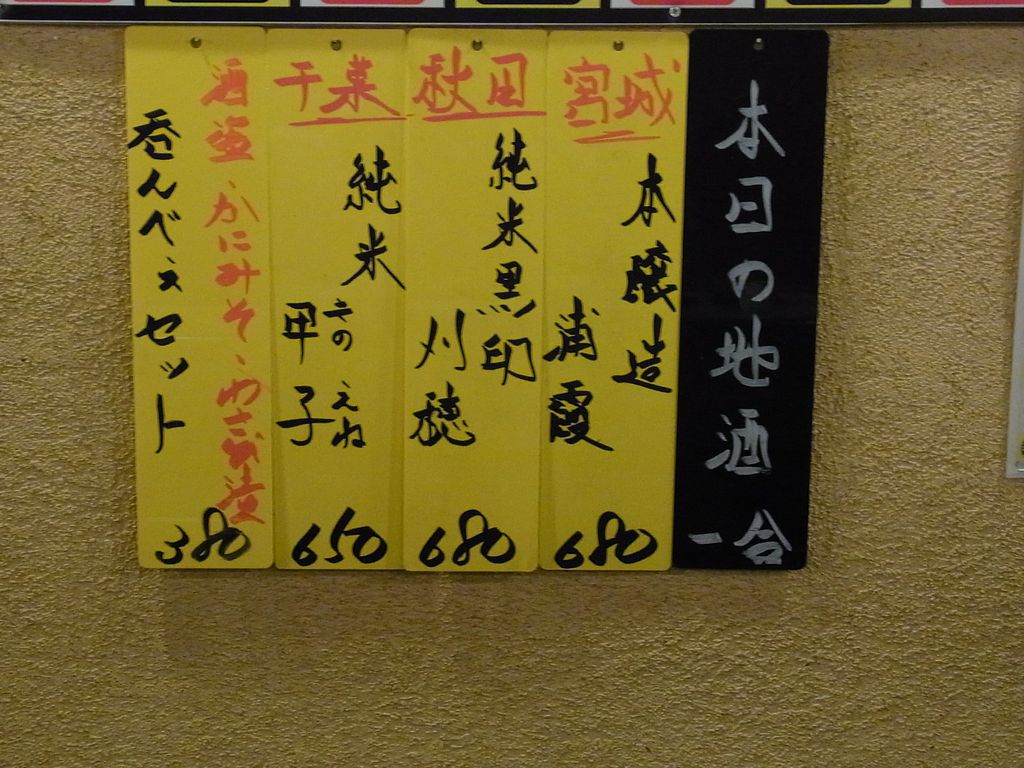 本日の地酒
一合
宮城
本醸造
浦霞
680
秋田
純米黒印
刈穂
680
千葉
純米
きのえね
甲子
650
酒盗、かにみそ、わさび漬
呑んべぇセット
380